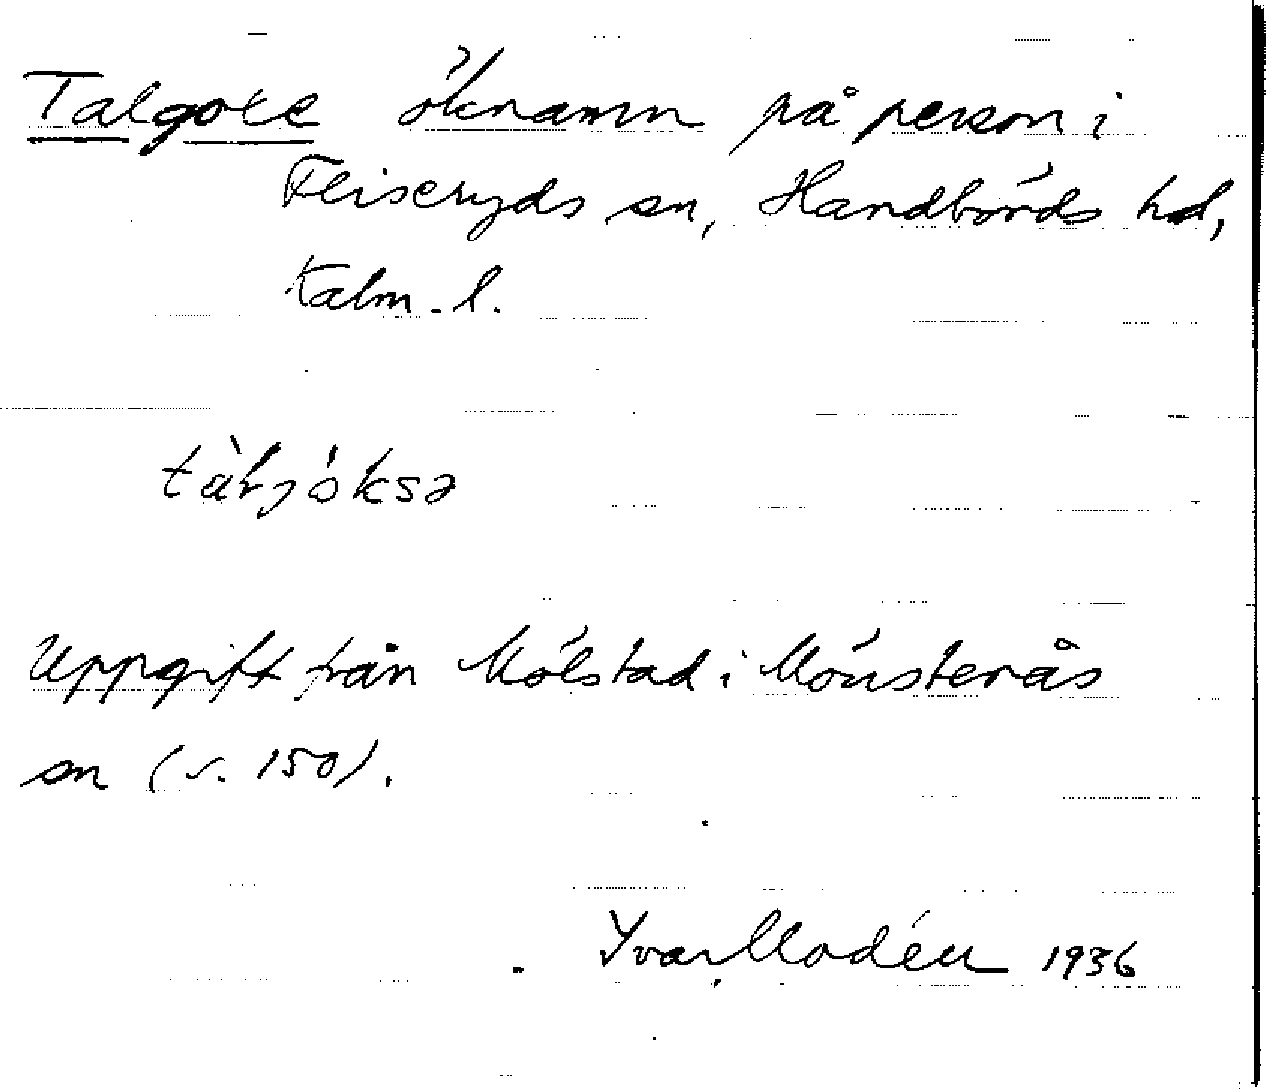 Talgoxe öknamn på person i
Fliseryds sn, Handbörds hd,
Kalm. l.
tàljóksə
Uppgift från Mölstad i Mönsterås
sn (s. 150).
Ivar Modéer 1936